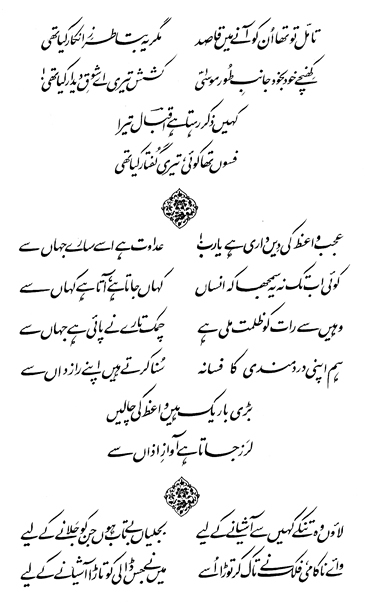 تامّل تو تھا اُن کو آنے میں قاصد مگر یہ بتا طرزِ انکار کیا تھی
کھنچے خود بخود جانبِ طُور موسٰیؑ کشش تیری اے شوقِ دیدار کیا تھی!
کہیں ذکر رہتا ہے اقبالؔ تیرا
فسوں تھا کوئی تیری گُفتار کیا تھی
عجب واعظ کی دیں داری ہے یا رب! عداوت ہے اسے سارے جہاں سے
کوئی اب تک نہ یہ سمجھا کہ انساں کہاں جاتا ہے آتا ہے کہاں سے
وہیں سے رات کو ظلمت ملی ہے چمک تارے نے پائی ہے جہاں سے
ہم اپنی درد مندی کا فسانہ سُنا کرتے ہیں اپنے راز داں سے
بڑی باریک ہیں واعظ کی چالیں
لرز جاتا ہے آوازِ اذاں سے
لاؤں وہ تنکے کہیں سے آشیانے کے لیے بجلیاں بے تاب ہوں جن کو جَلانے کے لیے
وائے ناکامی فلک نے تاک کر توڑا اُسے میں نے جس ڈالی کو تاڑا آشیانے کے لیے